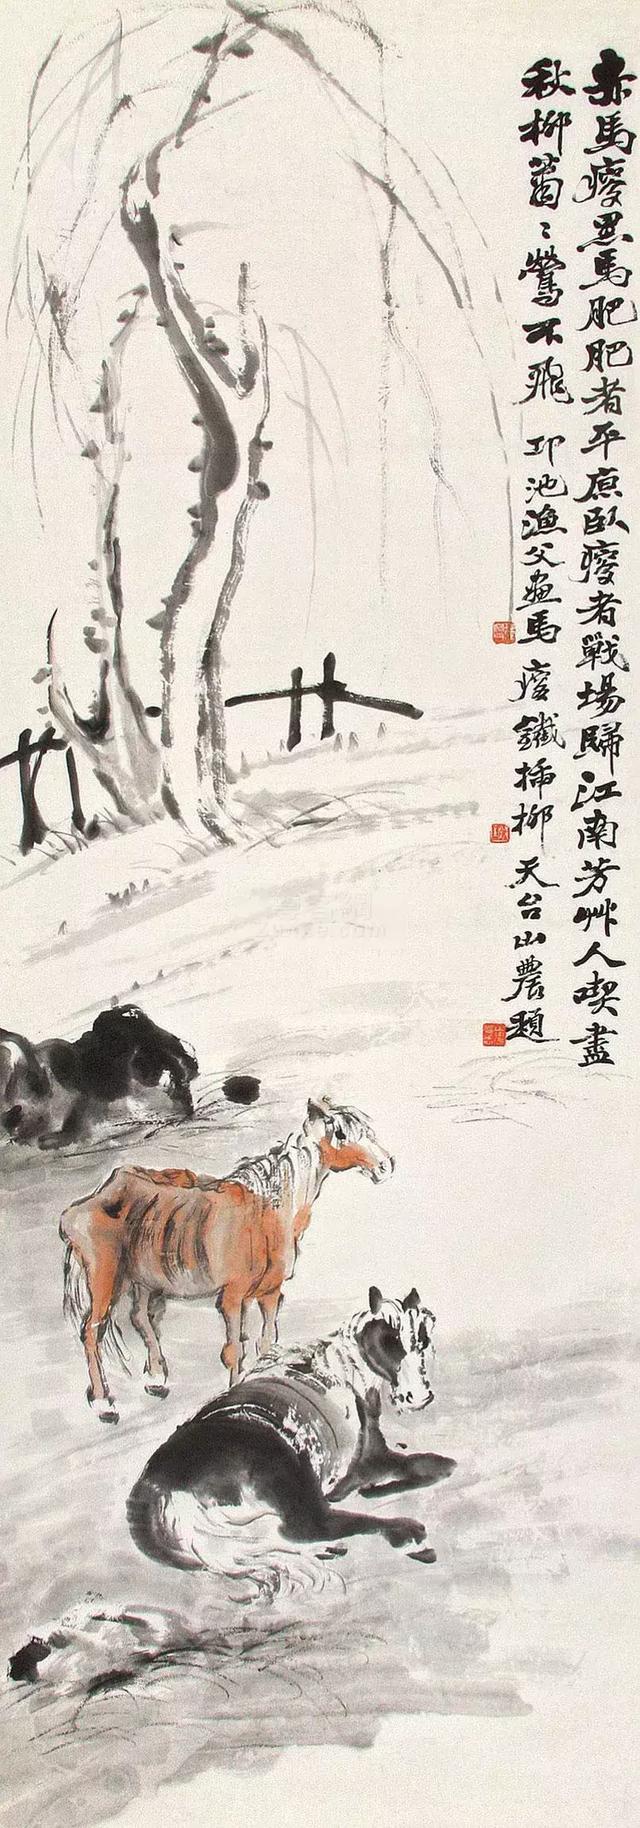 赤馬瘦黑馬肥肥者平庶臥瘦者戰場歸江南芳艸人喫盡
秋柳蕭〻鶯不飛 邛池漁父畫馬 瘦鐵插柳 天台山農題